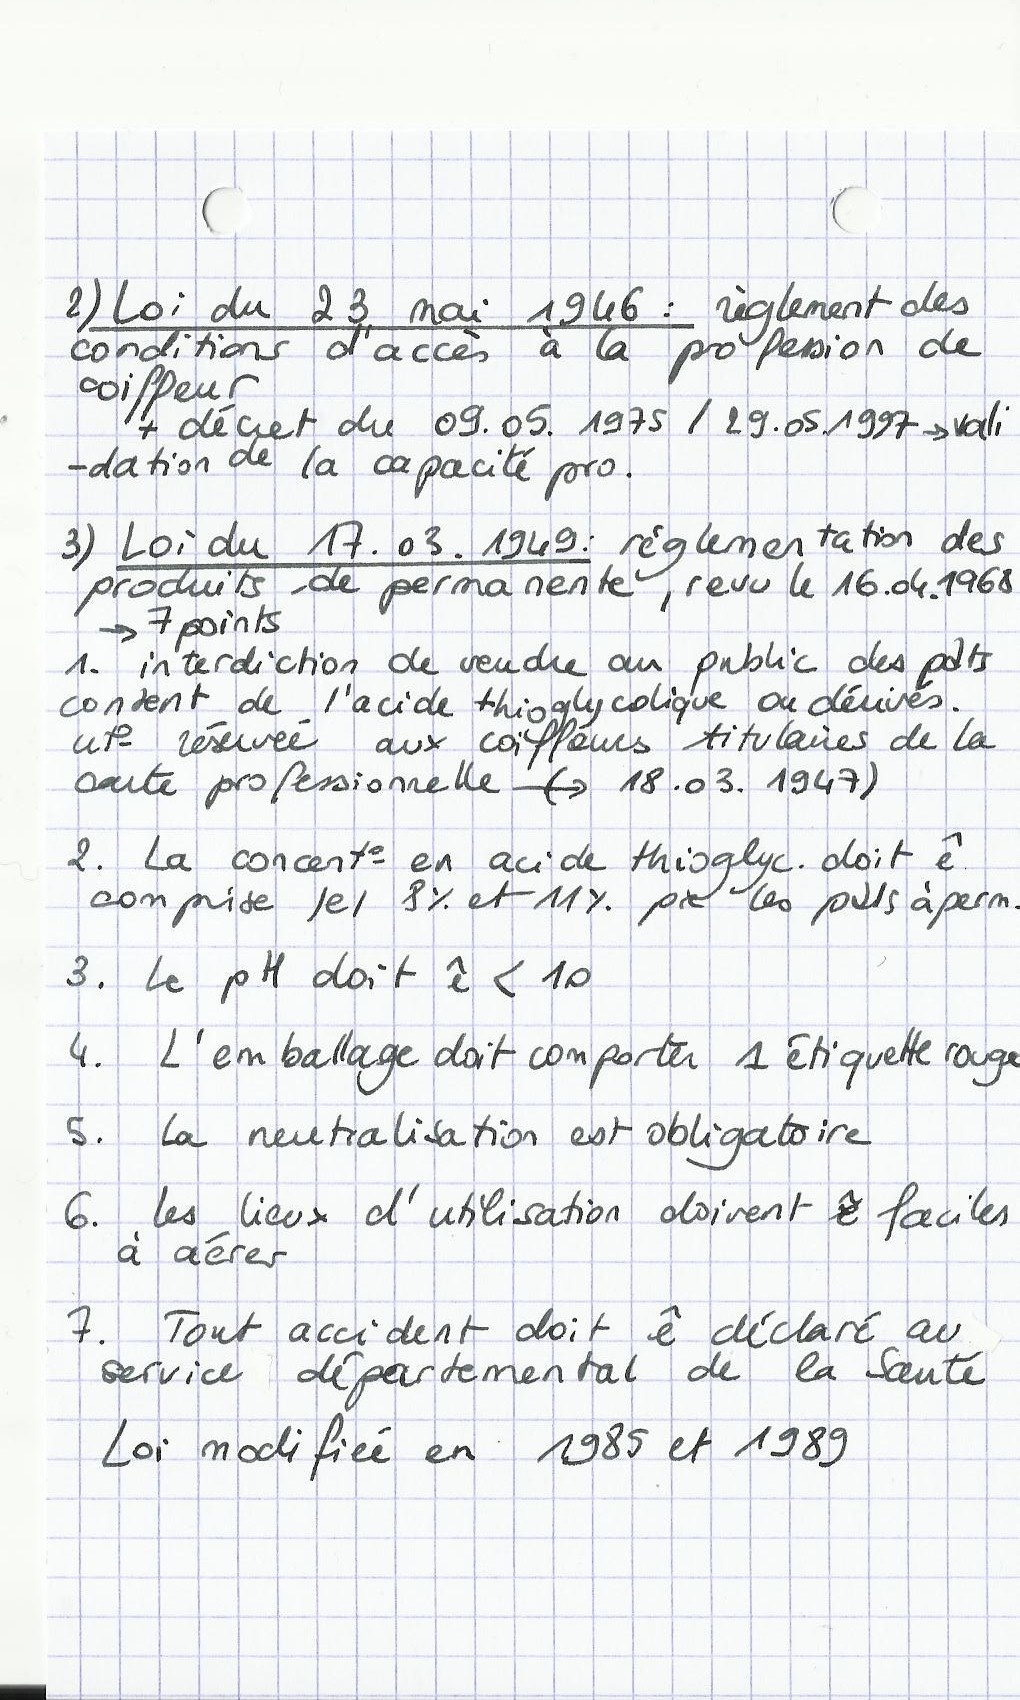 2) Loi du 23 mai 1946 : règlement des
conditions d'accès à la profession de
coiffeur
+ décret du 09.05.1975 / 29.05.1997 → vali
-dation de la capacité pro.
3) Loi du 17.03.1949: réglementation des
produits de permanente, revu le 16.04.1968
→ 7 points
1. interdiction de vendre au public des pdts
content de l'acide thioglycolique ou dérivés.
ut° réservée aux coiffeurs titulaires de la
carte professionnelle (→ 18.03.1947)
2. La concent° en acide thioglyc. doit ê
comprise /e/ 8% et 11%. pr les pdts à perm.
3. Le pH doit ê < 10
4. L'emballage doit comporter 1 étiquette rouge
5. La neutralisation est obligatoire
6. Les lieux d'utilisation doivent ê faciles
à aérer
7. Tout accident doit ê déclaré au
service départemental de la Santé
Loi modifiée en 1985 et 1989